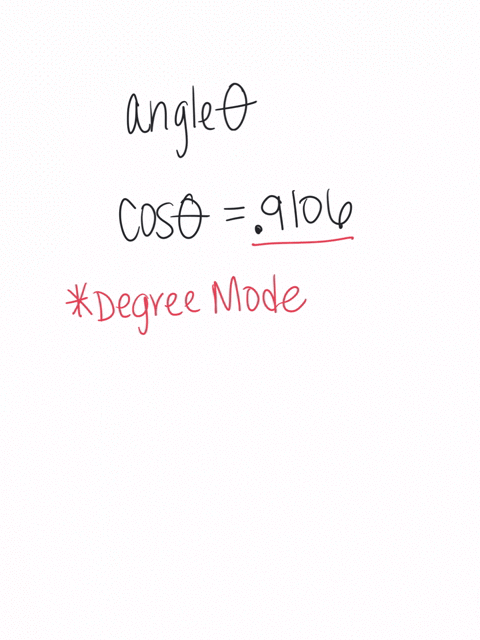 angle θ
cosθ = .9106
*Degree Mode